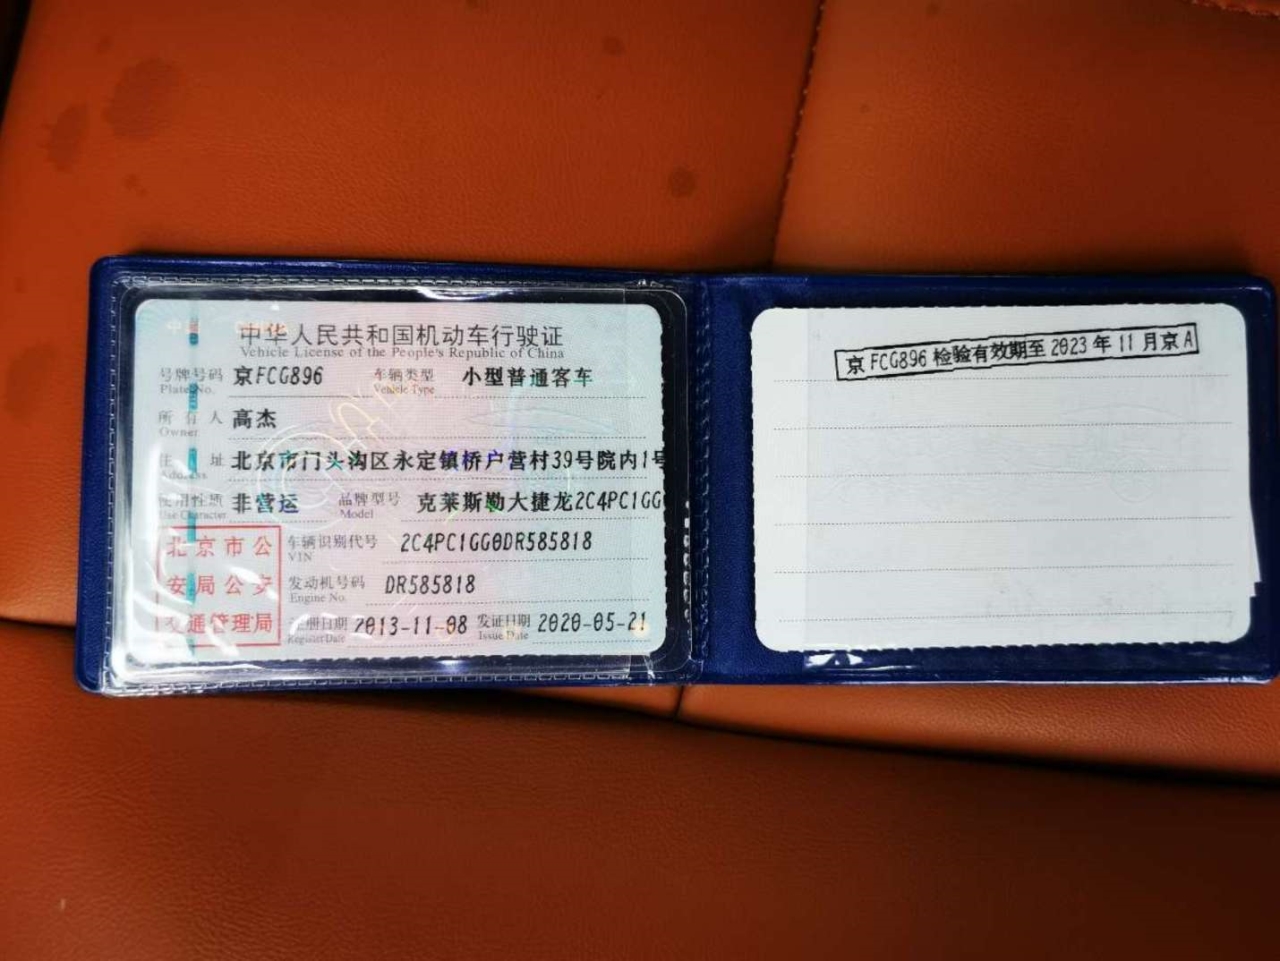 中华人民共和国机动车行驶证
Vehicle License of the People's Republic of China
号牌号码 京FCG896 车辆类型 小型普通客车
Plate No. Vehicle Type
所有人 高杰
Owner
住址 北京市门头沟区永定镇桥户营村39号院内1号
Address
使用性质 非营运 品牌型号 克莱斯勒大捷龙2C4PC1GG
Use Character Model
北京市公
安局公安
交通管理局
车辆识别代号 2C4PC1GG0DR585818
VIN
发动机号码 DR585818
Engine No.
注册日期 2013-11-08 发证日期 2020-05-21
Register Date Issue Date
京FCG896 检验有效期至 2023 年 11 月京 A